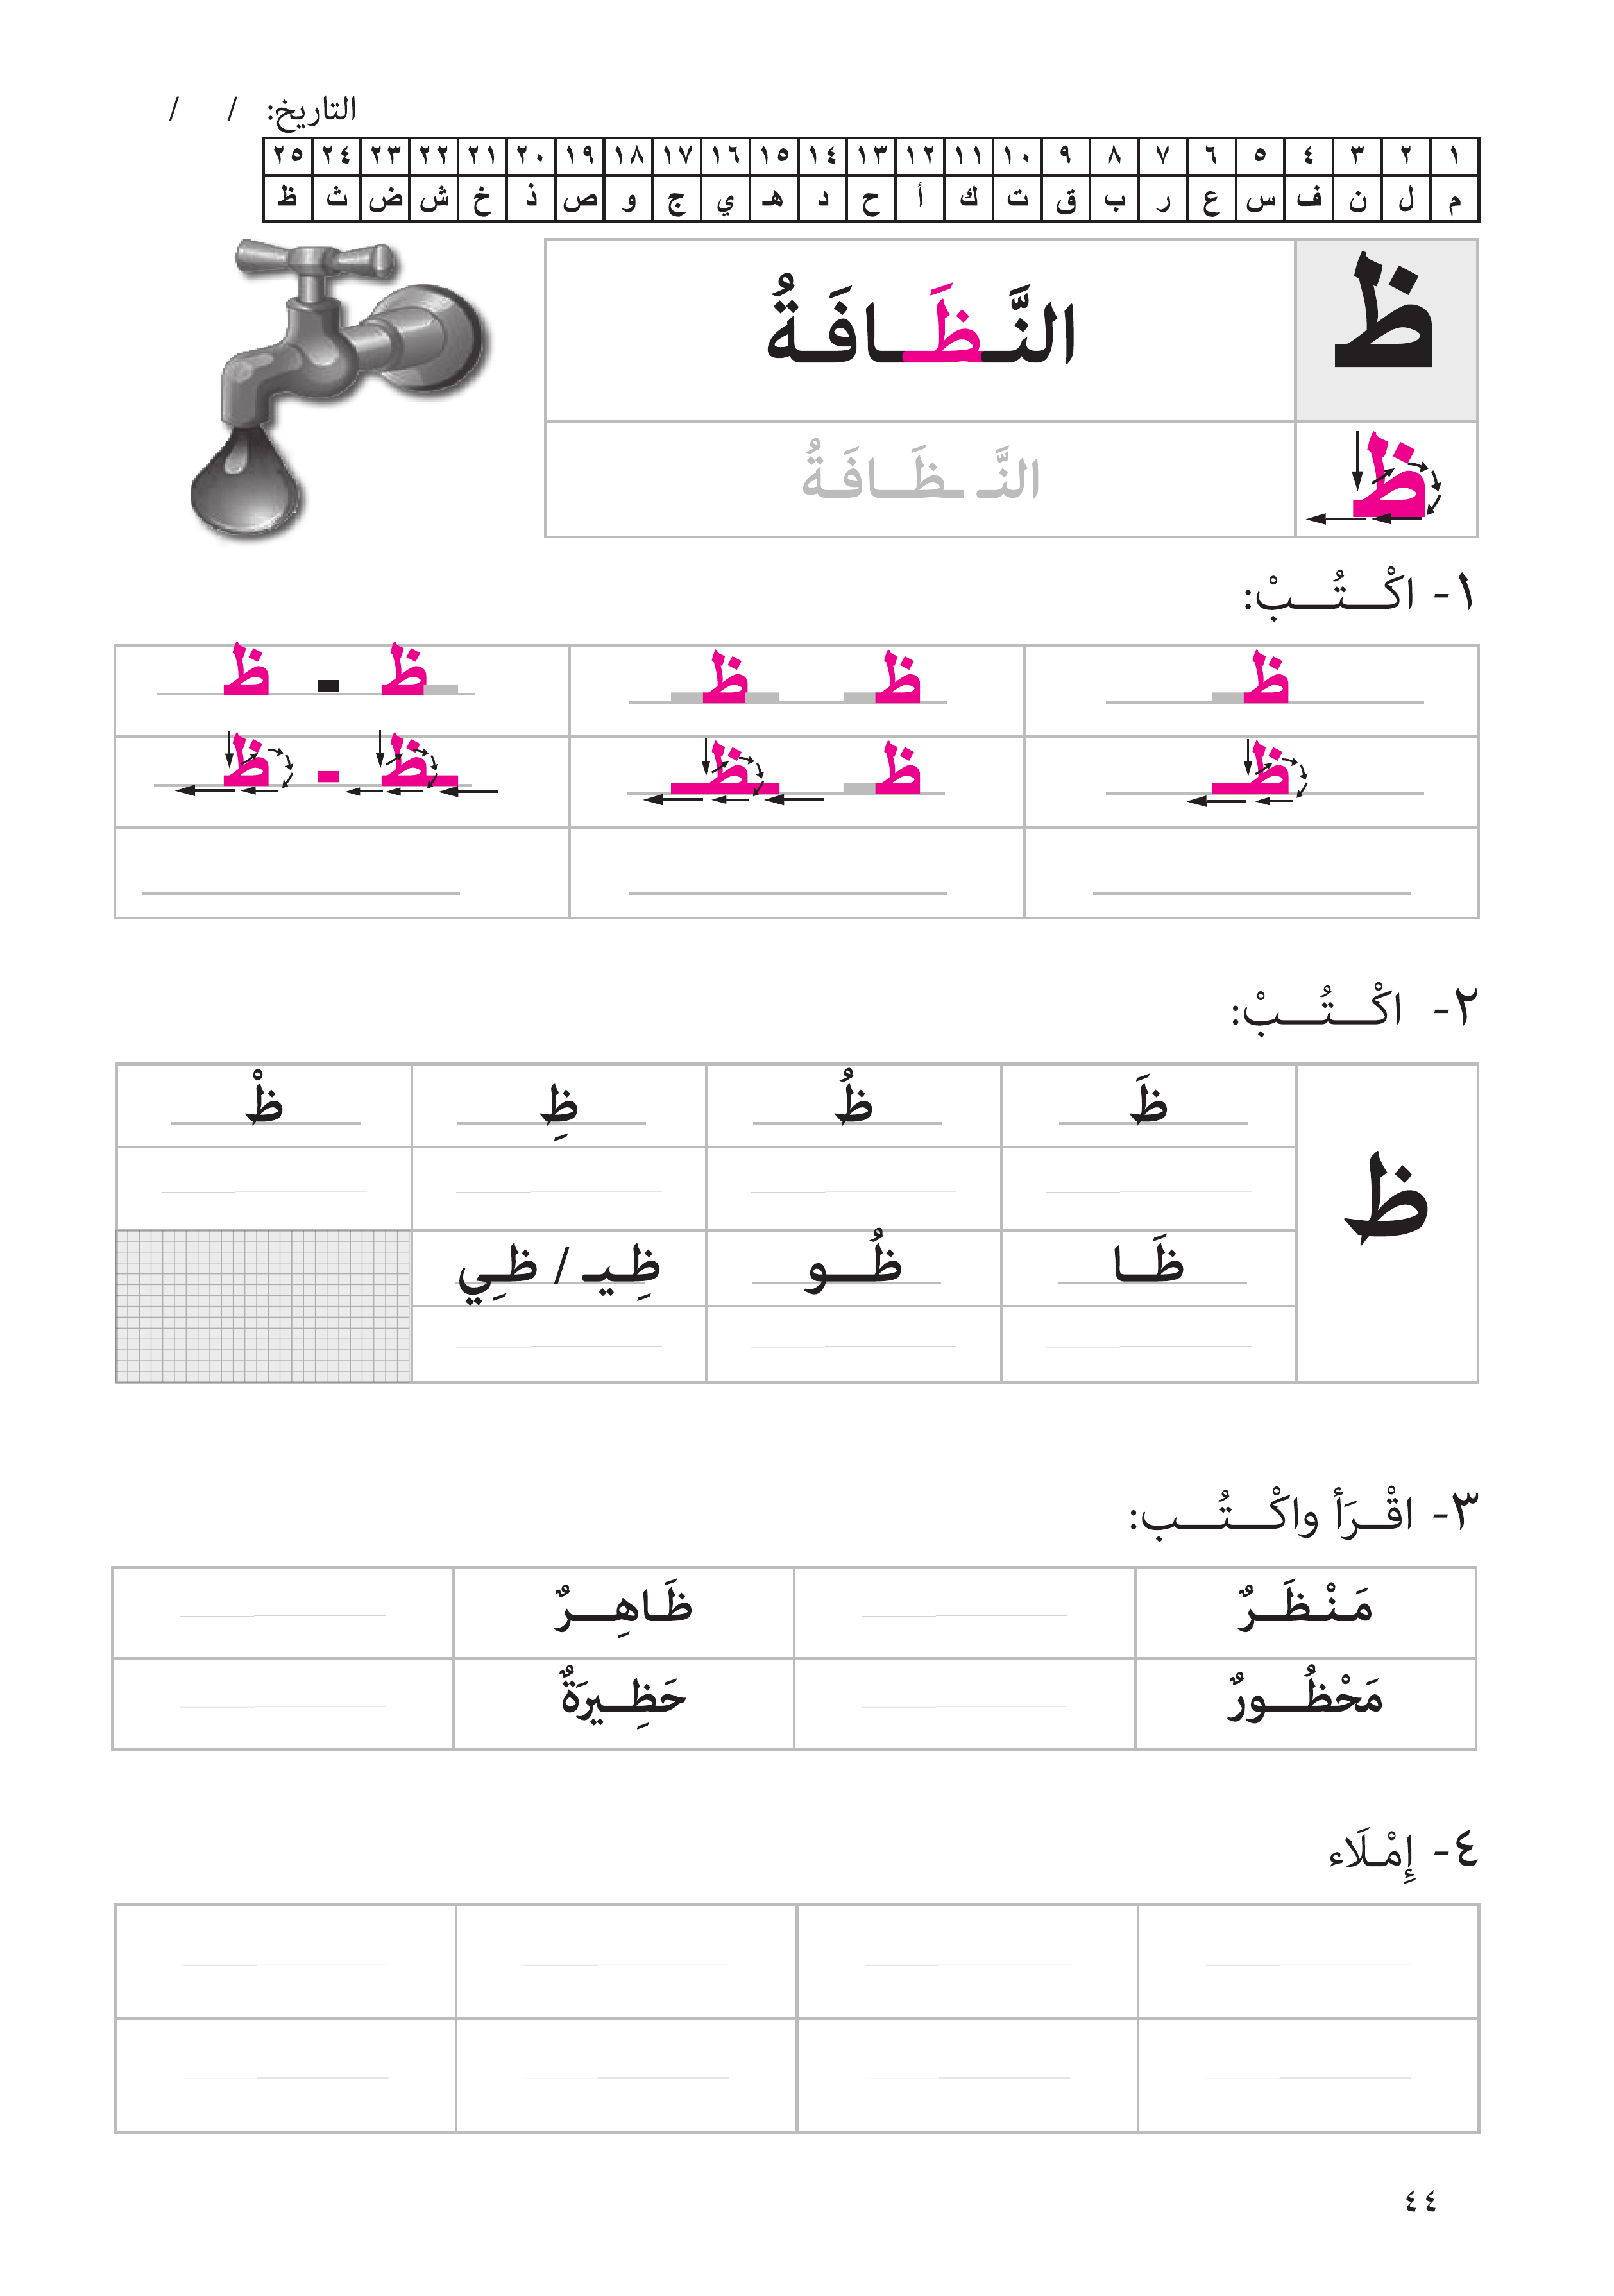 التاريخ: / /
١ ٢ ٣ ٤ ٥ ٦ ٧ ٨ ٩ ١٠ ١١ ١٢ ١٣ ١٤ ١٥ ١٦ ١٧ ١٨ ١٩ ٢٠ ٢١ ٢٢ ٢٣ ٢٤ ٢٥
م ل ن ف س ع ر ب ق ت ك أ ح د هـ ي ج و ص ذ خ ش ض ث ظ
ظ النَّـظَـافَـةُ
ظ النَّـ ـظَـافَـةُ
١- اكْـتُـبْ:
ظـ ظـ ـظـ ـظ - ظ
ظـ ظـ ـظـ ـظ - ظ
٢- اكْـتُـبْ:
ظ
ظَ ظُ ظِ ظْ
ظَـا ظُـو ظِـيـ / ظِـي
٣- اقْـرَأ واكْـتُـب:
مَـنْـظَـرٌ ظَـاهِـرٌ
مَحْظُـورٌ حَظِـيرَةٌ
٤- إِمْـلَاء
٤٤